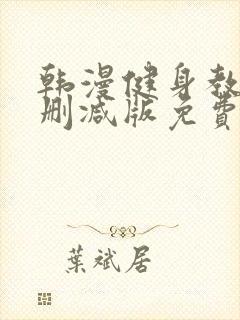 韩漫健身教
删减版免費
葉斌居